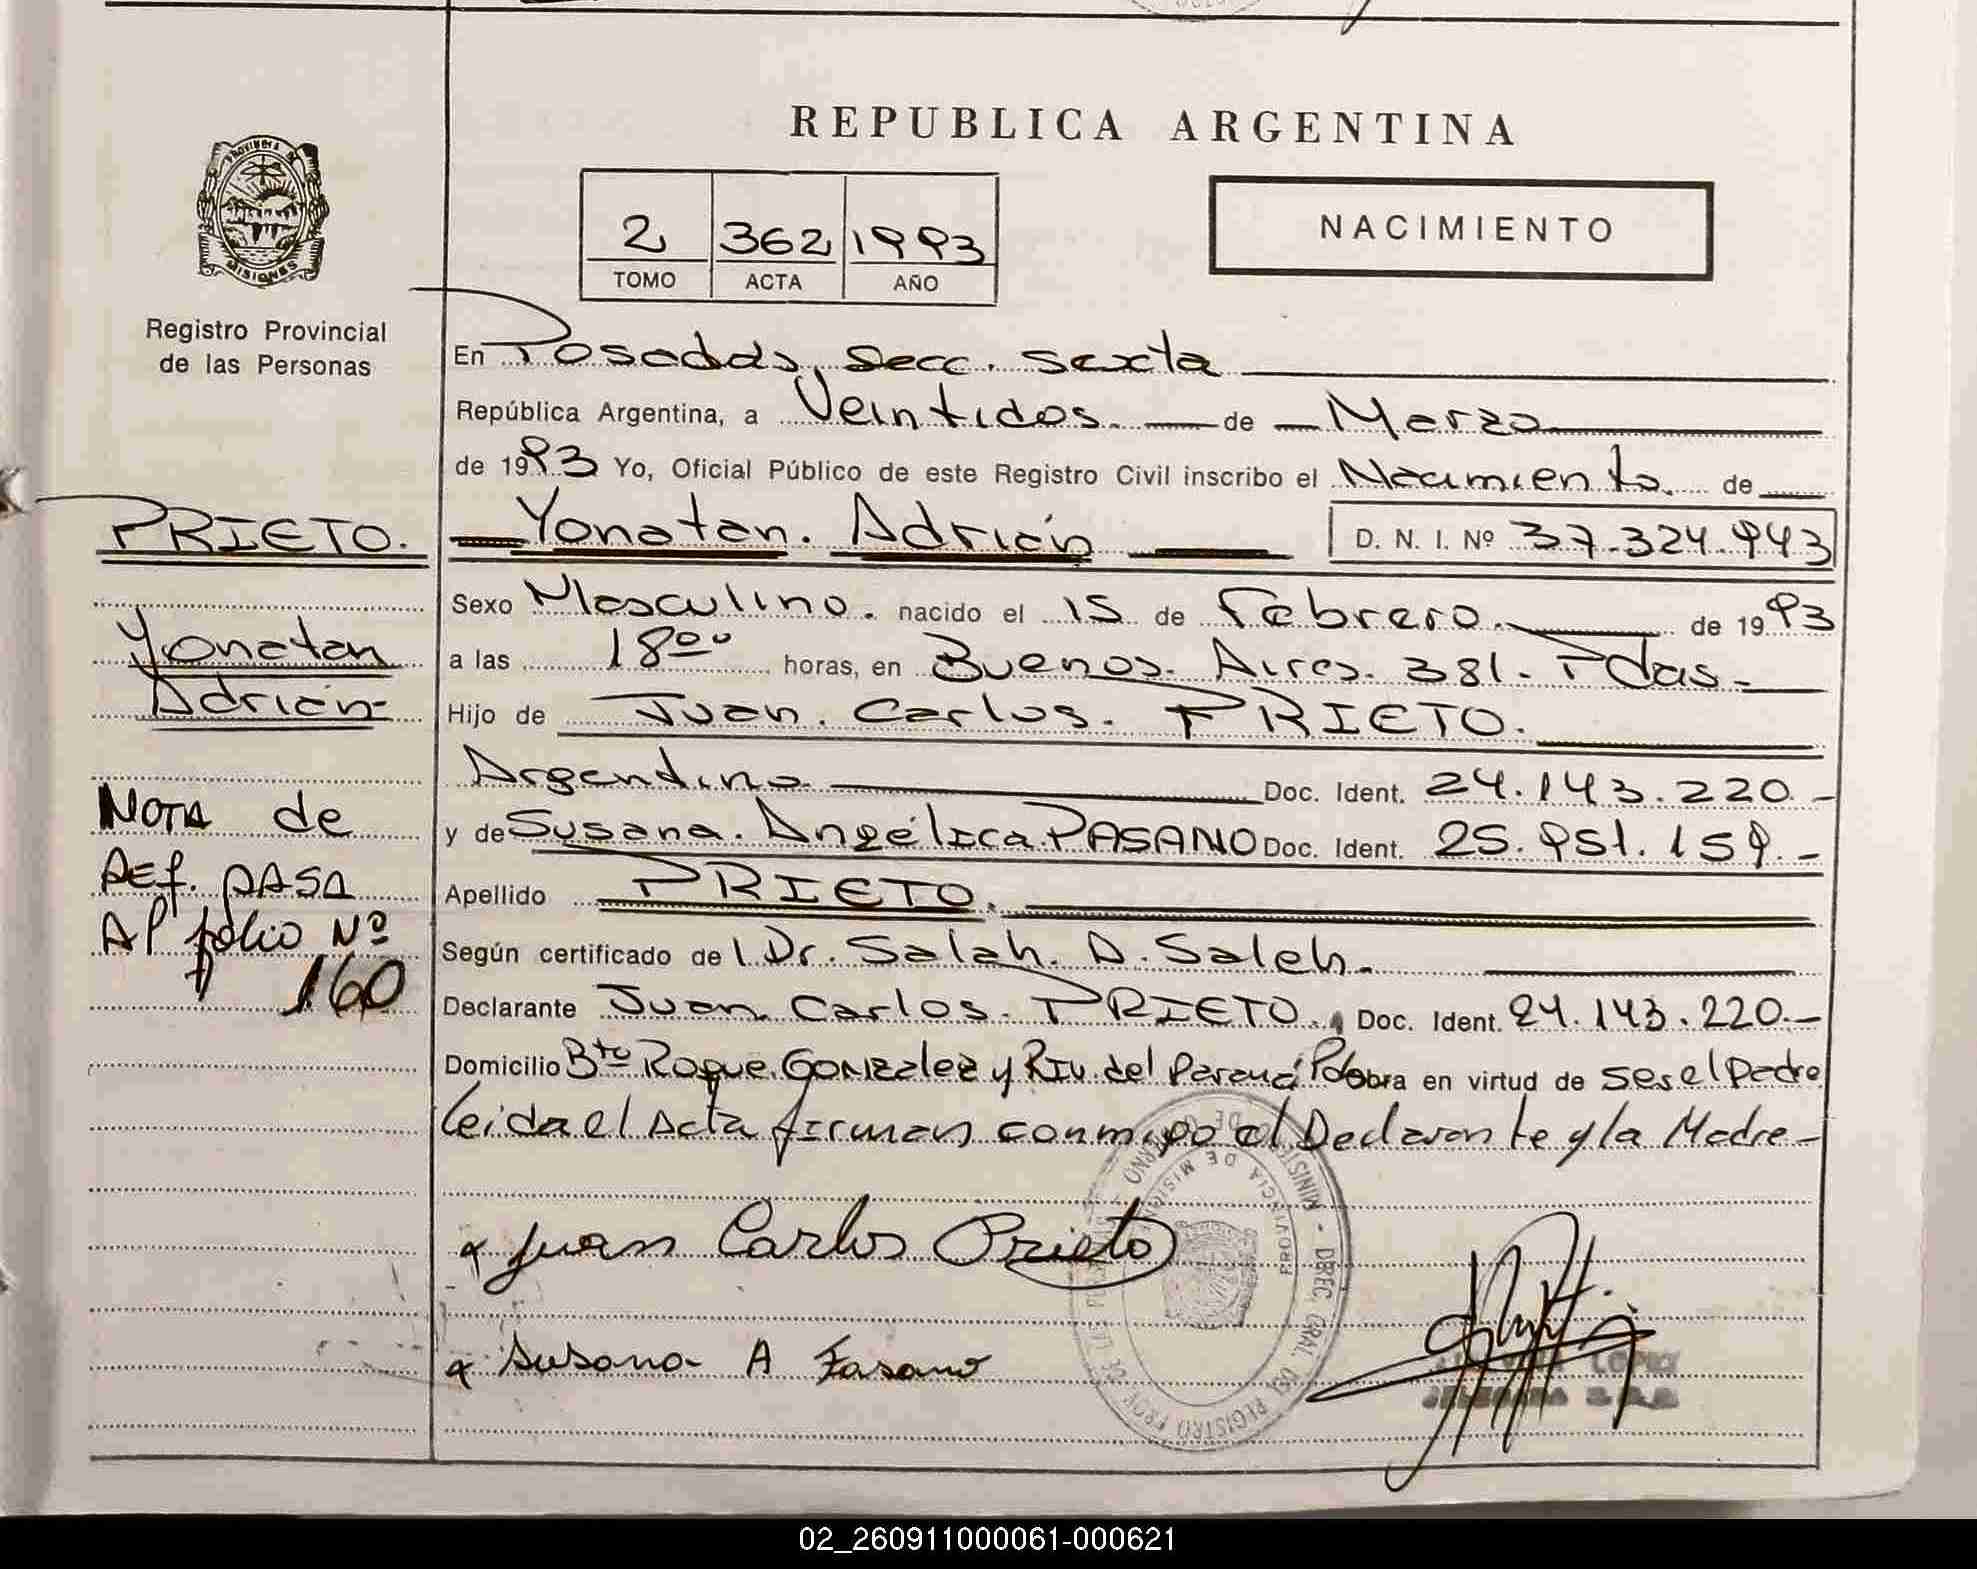 REPUBLICA ARGENTINA
PROVINCIA DE
MISIONES
Registro Provincial
de las Personas
2 362 1993
TOMO ACTA AÑO
NACIMIENTO
En Posadas, Secc. Sexta
República Argentina, a Veintidos. de Marzo
de 1993 Yo, Oficial Público de este Registro Civil inscribo el Nacimiento. de
PRIETO.
Yonatan. Adrián D. N. I. Nº 37.324.943
Sexo Masculino. nacido el 15 de Febrero. de 1993
Yonatan
Adrián-
a las 18ºº horas, en Buenos. Aires. 381. Pdas-
Hijo de Juan. Carlos. PRIETO.
Argentino Doc. Ident. 24.143.220.-
NOTA de
REf. PASA
AL folio Nº
160
y de Susana. Angélica. PASANO Doc. Ident. 25.951.159.-
Apellido PRIETO.
Según certificado de Dr. Salah. D. Saleh.
Declarante Juan Carlos. PRIETO. Doc. Ident. 24.143.220.-
Domicilio Bto Roque. Gonzalez y Riv. del Paraná Pdas obra en virtud de ser el Padre
Leida el Acta firman conmigo el Declarante y la Madre-
Juan Carlos Prieto
Susana A Fasano
MINISTERIO DE GOBIERNO - DIREC. GRAL. DEL REGISTRO PROV. DE LAS PERSONAS
PROVINCIA DE MISIONES
LOPEZ
02_260911000061-000621